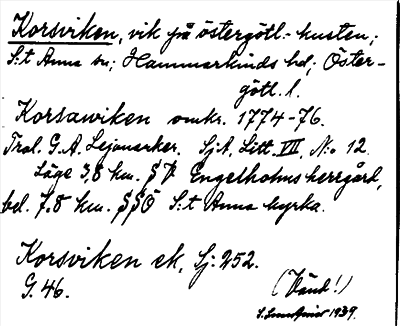 Korsviken, vik på östergötl.-kusten;
S:t Anna sn; Hammarkinds hd; Öster-
götl. l.
Korsawiken omkr. 1774-76.
Trol. G. A. Lejonmarker, Sj A, Litt. VII, No 12.
Läge 3,8 km. S V. Engelholms herrgård,
bel. 7.8 km. SSÖ S:t Anna kyrka.
Korsviken ek, Sj: 252.
G. 46.
(Vänd!)
1939.